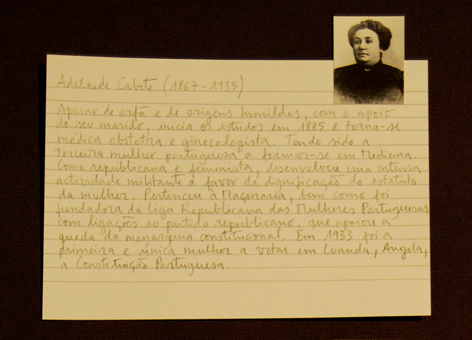 Adelaide Cabete (1867-1935)
Apesar de orfã e de origens humildes, com o apoio
de seu marido, inicia os estudos em 1885 e torna-se
médica obstetra e ginecologista. Tendo sido a
terceira mulher portuguesa a formar-se em Medicina.
Como republicana e feminista, desenvolveu uma intensa
actividade militante a favor da dignificação do estatuto
da mulher. Pertenceu à Maçonaria, bem como foi
fundadora da Liga Republicana das Mulheres Portuguesas
com ligações ao partido republicano, que apoiou a
queda da monarquia constitucional. Em 1933 foi a
primeira e única mulher a votar em Luanda, Angola,
a Constituição Portuguesa.